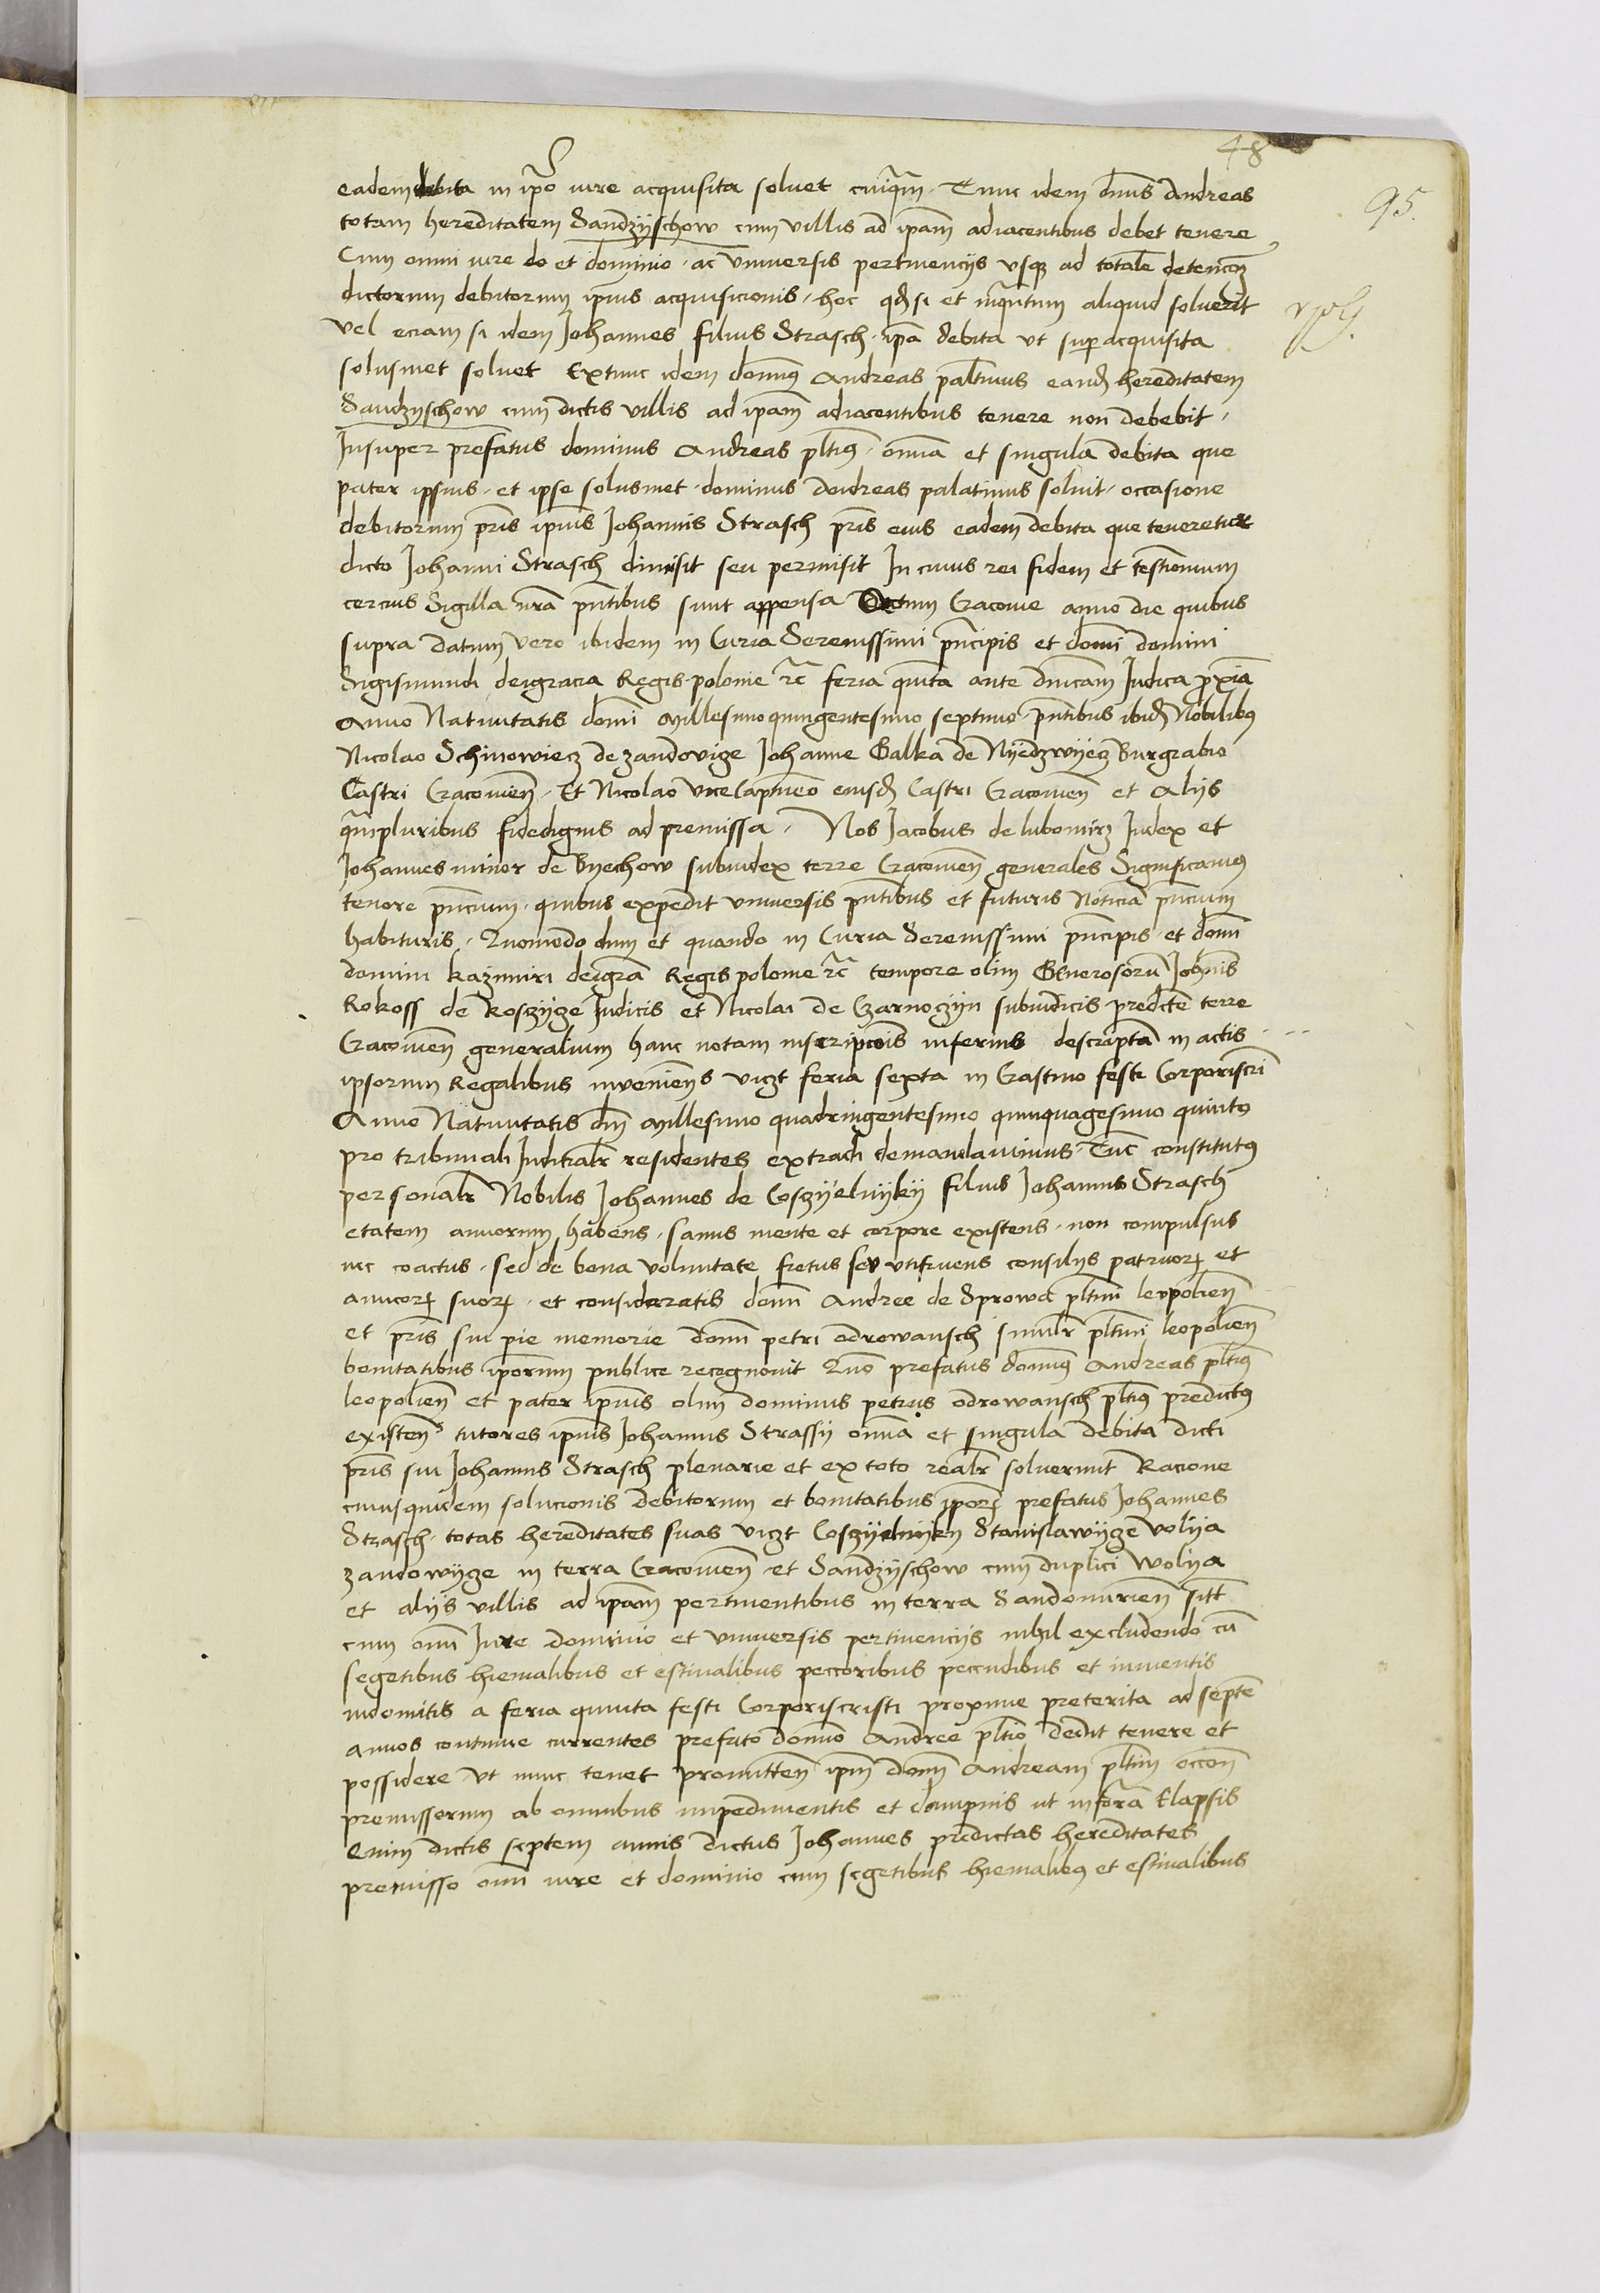 48
95.
eadem debita in ipso iure acquisita soluet cuiqm̃. Tunc idem dñus Andreas
totam hereditatem Sandzyschow cum villis ad ip̃am adiacentibus debet tenere
Cum omni iure do et dominio. ac vniuersis pertinencijs vsq ad totalẽ detencoẽ
dictorum debitorum ip̃ius acquisicionis. hoc q̃d si et inq̃ntum aliquid soluerit
vel eciam si idem Johannes filius Strasch. ip̃a debita vt sup̃ acquisita
solusmet soluet Extunc idem domin9 Andreas paltinus eand̃ hereditatem
Sandzyschow cum dictis villis ad ip̃am adiacentibus tenere non debebit.
Insuper prefatus dominus Andreas pltin9. om̃ia et singula debita que
pater ipsius. et ipse solusmet. dominus Andreas palatinus soluit. occasione
debitorum pr̃is ip̃ius Johannis Strasch pr̃is eius eadem debita que teneretur
dicto Johanni Strasch dimisit seu permisit In cuius rei fidem et testimonium
cercius Sigilla nr̃a pñtibus sunt appensa Actum Cracouie anno die quibus
supra datum vero ibidem in Curia Serenissimi pñcipis et domĩ domini
Sigismundi deigracia Regis polonie rc̃ feria quinta ante dñicam Judica proxiã
Anno Natiuitatis domĩ Millesimoquingentesimo septimo. pñtibus ibid̃ Nobilib9
Nicolao Schinowiecz de zandovige Johanne Galka de Nyedzwyecz Burgrabio
Castri Cracouieñ. Et Nicolao vicecapitaneo eiusd̃ Castri Cracouieñ et Alijs
q̃mpluribus fidedignis ad premissa. Nos Jacobus de lubomirz Judex et
Johannes minor de Byechow subiudex terre Cracouieñ generales Significam9
tenore pñcium. quibus expedit vniuersis pñtibus et futuris Noticiã pñcium
habituris. Quomodo dum et quando in Curia Serenissimi pñcipis et domĩ
domini kazimiri deigrã Regis polonie rc̃ tempore olim Generosorũ Joh̃nis
Rokoss de Koszyze Judicis et Nicolai de Czarnoczyn subiudicis predcte terre
Cracouieñ generalium hanc notam inscripcois inferius descriptã in actis
ipsorum Regalibus inueniens vizt feria sexta in Crastino festi Corporiscrĩ
Anno Natiuitatis dñi Millesimo quadringentesimo quinquagesimo quint9
pro tribunali Judicialr̃ residentes extradi demandauimus. Tũc constitut9
personalr̃ Nobilis Johannes de Coszyelnyky filius Johannis Strasch
etatem annorum habens. sanus mente et corpore existens. non compulsus
nec coactus. sed de bona voluntate fretus seu vtifruens consilijs patruor̃ et
amicor̃ suor̃. et consideratis domĩ Andree de Sprowa pltini leopolieñ
et pr̃is sui pie memorie domĩ petri odrowansch similr̃ pltini leopolieñ
bonitatibus ip̃orum publice recognouit Quo prefatus domin9 Andreas pltin9
leopolieñ et pater ip̃ius olim dominus petrus odrowansch pltin9 predict9
existeñs tutores ip̃ius Johannis Strassy om̃ia et singula debita dicti
pr̃is sui Johannis Strasch plenarie et ex toto realr̃ soluerunt Racione
cuiusquidem solucionis debitorum et bonitatibus ip̃or̃ prefatus Johannes
Strasch. totas hereditates suas vizt Coszyelnyky Stanislawyze volya
zandowyze in terra Cracouieñ et Sandzyschow cum duplici wolya
et alijs villis ad ip̃am pertinentibus in terra Sandomirieñ sitt̃
cum om̃i Jure dominio et vniuersis pertinencijs nihil excludendo cũ
segetibus hiemalibus et estiualibus peccoribus peccudibus et iumentis
indomitis a feria quinta festi Corporiscristi proxime preterita ad septẽ
annos continue currentes prefato domino Andree pltino dedit tenere et
possidere vt nunc tenet promitteñ ip̃m domĩ Andream pltinũ occoñ
premissorum ab omnibus impedimentis et dampnis vt in forã Elapsis
Enim dictis septem annis dictus Johannes predictas hereditates
premisso om̃i iure et dominio cum segetibus hiemalib9 et estiualibus